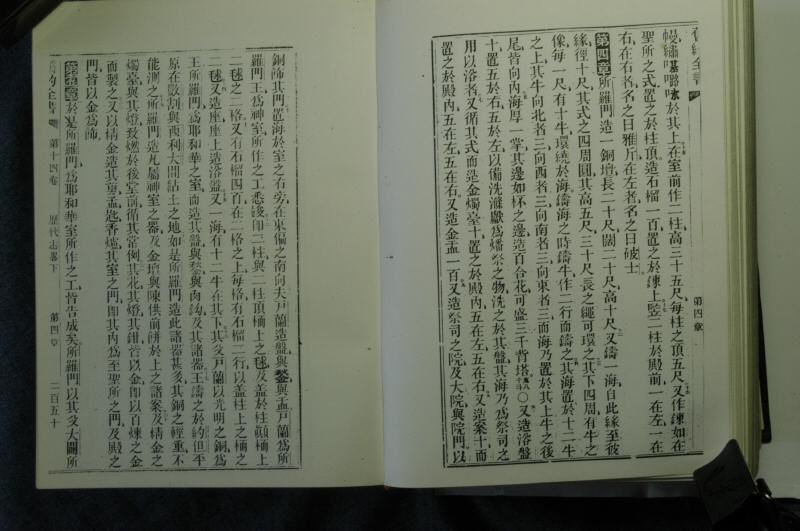 舊約全書
第四章
幔繡𠼻𡀔𠱥於其上在室前作二柱高三十五尺每柱之頂五尺又作鍊如在
聖所之式置之於柱頂造石榴一百置之於鍊上竪二柱於殿前一在左一在
右在右者名之曰雅斤在左者名之曰破士
第四章 所羅門造一銅壇長二十尺闊二十尺高十尺又鑄一海自此緣至彼
緣徑十尺其式之四周圓其高五尺三十尺長之繩可環之其下四周有牛之
像每一尺有十牛環繞於海鑄海之時鑄牛作二行而鑄之其海置於十二牛
之上其牛向北者三向西者三向南者三向東者三而海乃置於其上牛之後
尾皆向內海厚一掌其邊如杯之邊造百合花可盛三千背塔〇又造浴盤
十置五於右五於左以備洗滌獻爲燔祭之物洗之於其盤其海乃爲祭司之
用以浴者又循其式而造金燭臺十置之於殿內五在左五在右又造案十而
置之於殿內五在左五在右又造金盂一百又造祭司之院及大院與院門以
銅飾其門置海於室之右旁在東偏之南向夫戶蘭造盤與鍫與盂戶蘭爲所
羅門王爲神室所作之工悉竣卽二柱與二柱頂桷上之毬及蓋於柱顛桷上
二毬之二格又有石榴四百在二格之上每格有石榴二行以蓋柱上之桷之
二毬又造座座上造浴盤又一海有十二牛在其下其父戶蘭以光明之銅爲
王所羅門爲耶和華之室而造其盤與鍫與肉鈎及其諸器王鑄之於約但平
原在數割與西利大間黏土之地如是所羅門造此諸器甚多其銅之輕重不
能測之所羅門造凡屬神室之器及金壇與陳供前餅於上之諸案及精金之
燭臺與其燈致燃於後堂前循其常例其花其燈其鉗皆以金卽以百煉之金
而製之又以精金造其剪盂匙香爐其室之門卽其內爲至聖所之門及殿之
門皆以金爲飾
第五章 於是所羅門爲耶和華室所作之工皆告成矣所羅門以其父大闢所
舊約全書
第十四卷
歷代志畧下
第四章
二百五十